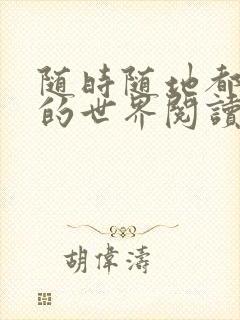 随時随地都
的世界閱讀
胡偉濤